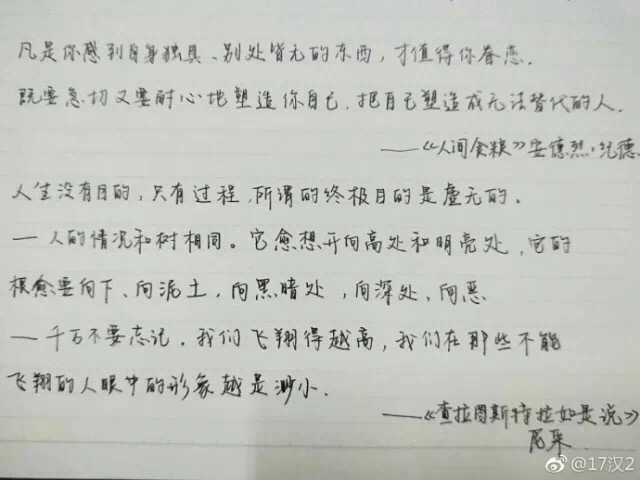 凡是你感到自身独具、别处皆无的东西，才值得你眷恋.
既要急切又要耐心地塑造你自己，把自己塑造成无法替代的人.
——《人间食粮》安德烈·纪德
人生没有目的，只有过程，所谓的终极目的是虚无的。
—人的情况和树相同。它愈想开向高处和明亮处，它的
根愈要向下、向泥土，向黑暗处，向深处、向恶
—千万不要忘记。我们飞翔得越高，我们在那些不能
飞翔的人眼中的形象越是渺小.
——《查拉图斯特拉如是说》
尼采
@17汉2